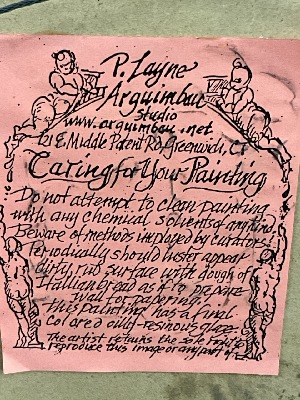 P. Layne
Arguimbau
Studio
www.arguimbau.net
121 E. Middle Patent Rd, Greenwich, CT
Caring for Your Painting
Do not attempt to clean painting
with any chemical solvents of any kind.
Beware of methods imployed by curators.
Periodically should luster appear
dirty, rub surface with dough of
Itallian bread as if to prepare
wall for papering.
This painting has a final
colored oil-resinous glaze.
The artist retains the sole right to
reproduce this image or any part of